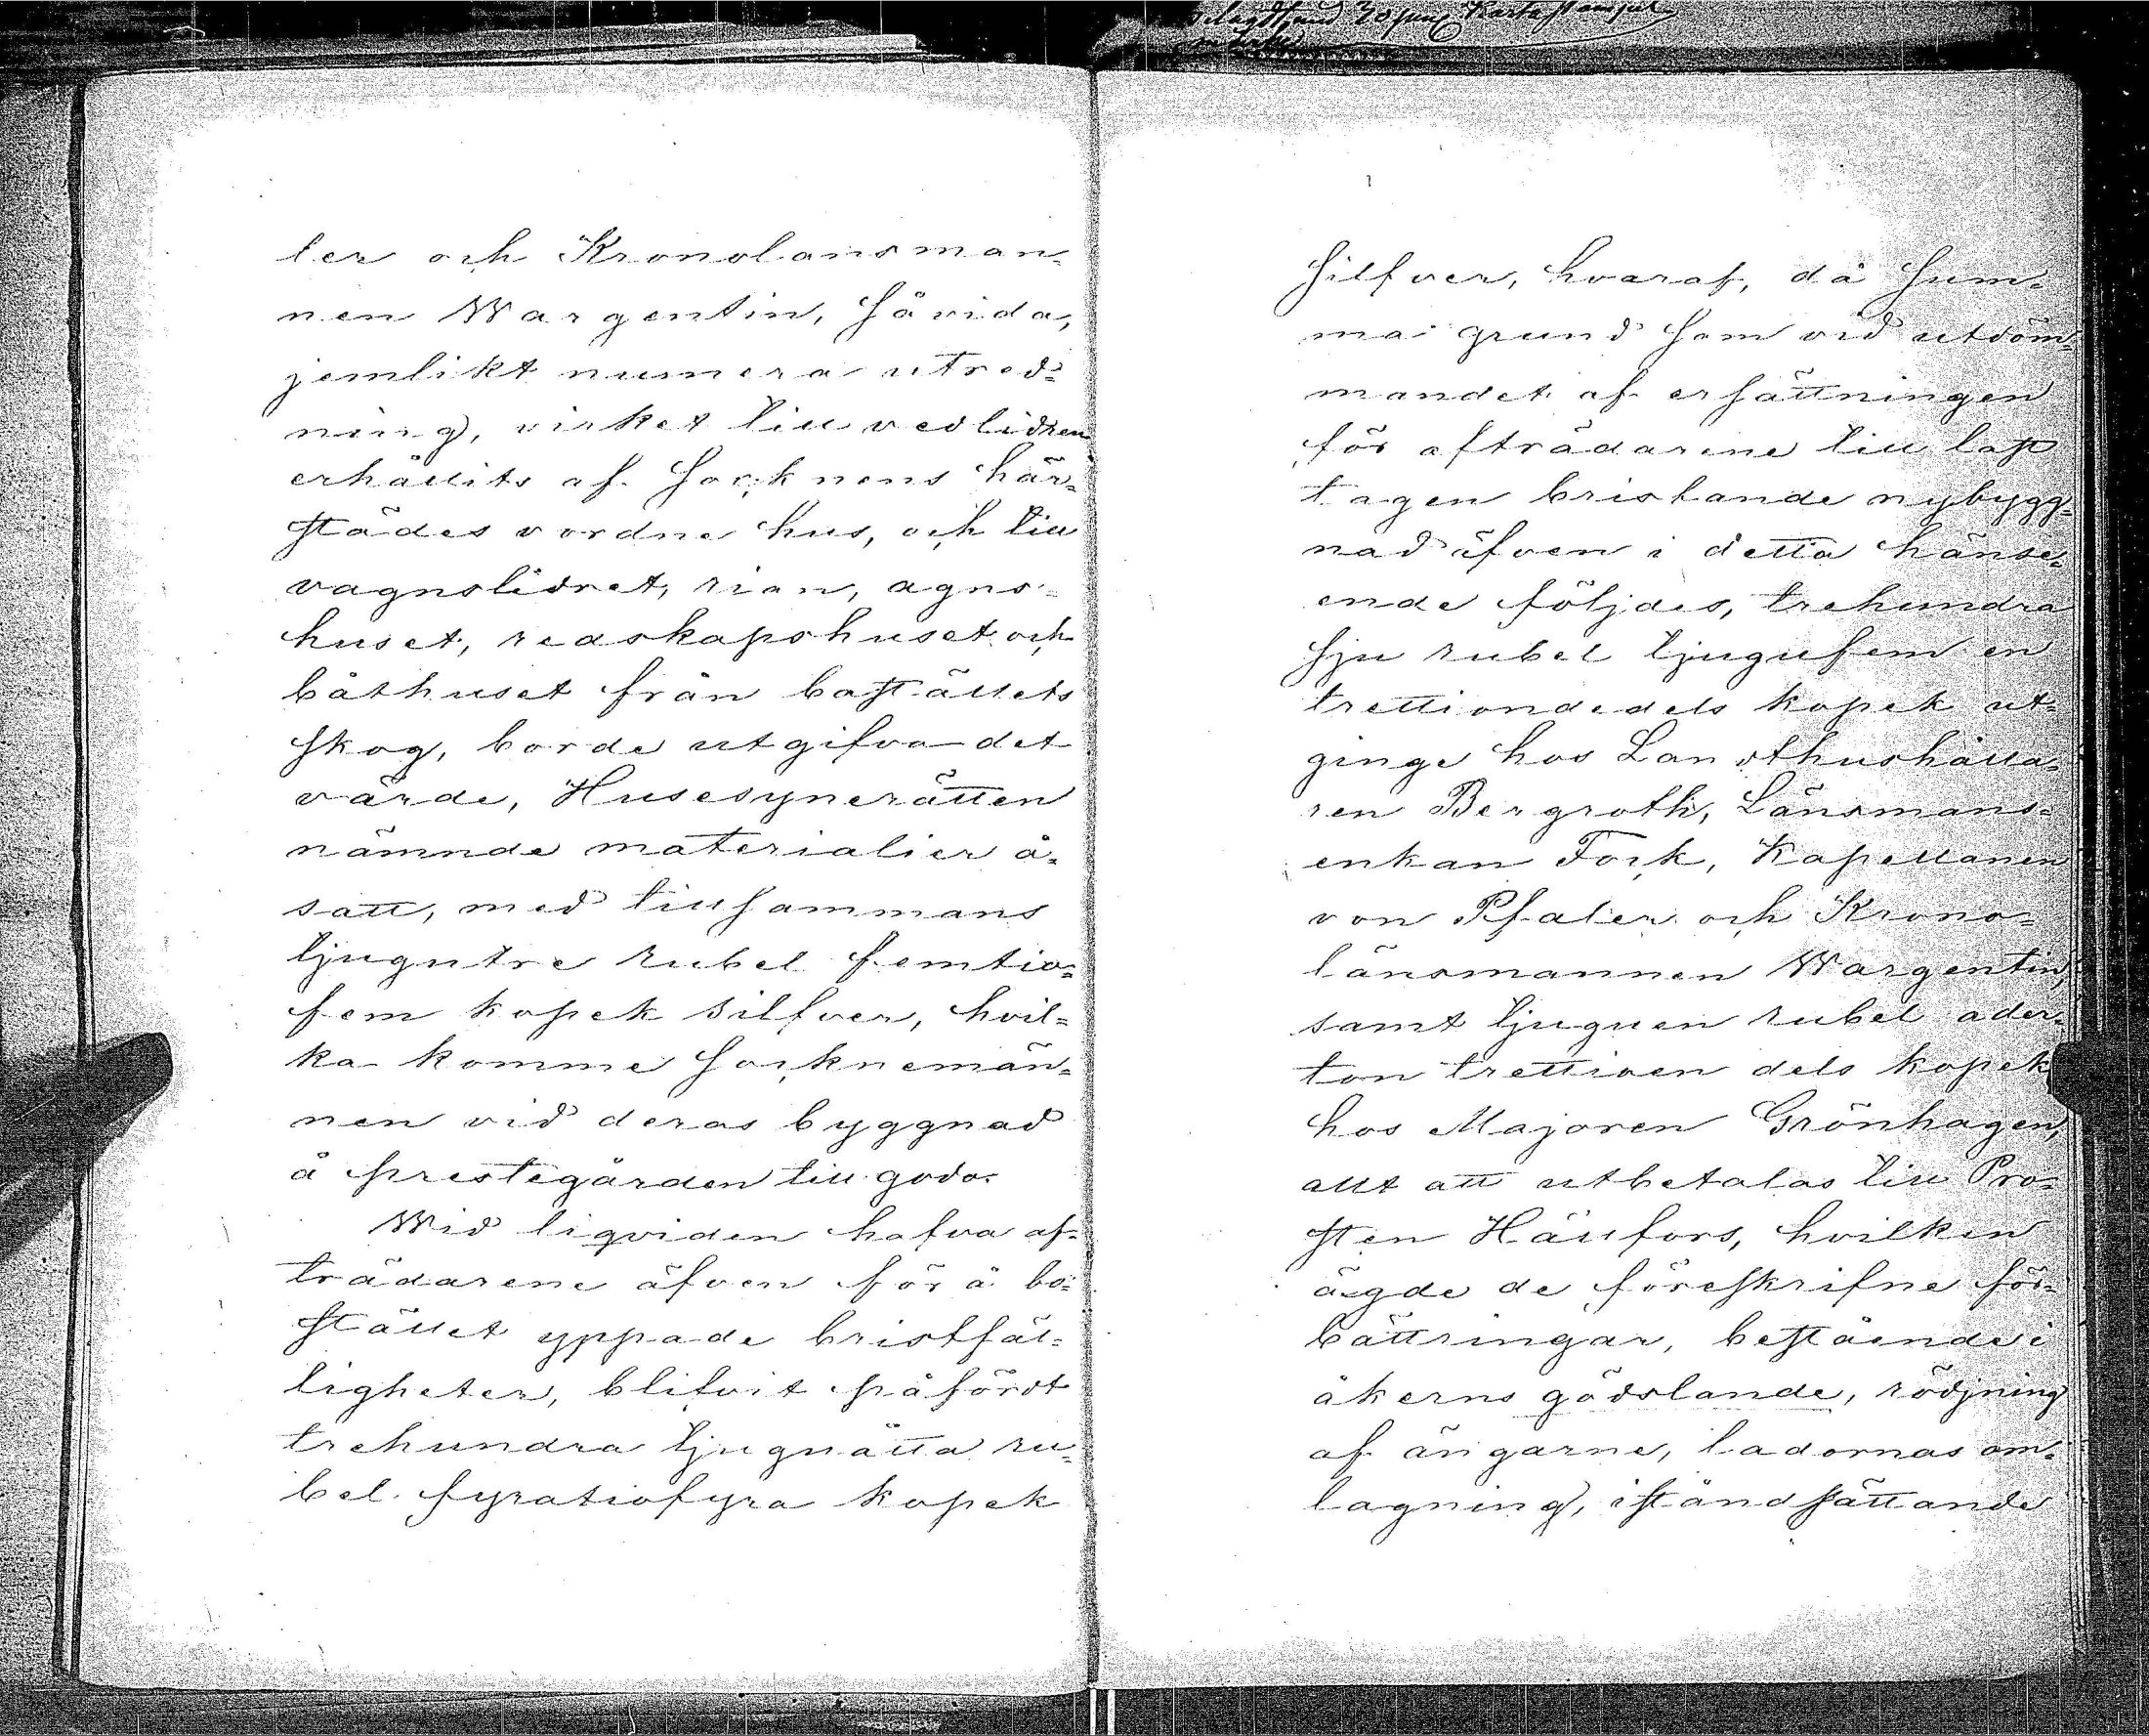 ler och Kronolänsman-
nen Wargentin, såvida,
jemlikt numera utred-
ning, virket till vedlidren
erhållits af Socknens här-
städes vordne hus, och till
vagnslidret, rian, agns-
huset, redskapshuset och
båthuset från boställets
skog, borde utgifva det
värde, Husesynerätten
nämnde materialier å-
satt, med tillsammans
tjugutre rubel femtio-
fem kopek silfver, hvil-
ka komme Socknemän-
nen vid deras byggnad
å prestegården till godo.
Wid liqviden hafva af-
trädarene äfven för å bo-
stället yppade bristfäl-
ligheter, blifvit påfördt
trehundra tjuguåtta ru-
bel fyratiofyra kopek
Silfver, hvaraf, då sam-
ma grund som vid utdöm-
mandet af ersättningen
för afträdarene till last
tagen bristande nybygg-
nad äfven i detta hänse-
ende följdes, trehundra
sju rubel tjugufem en
trettiondedels kopek ut-
ginge hos Landthushålla-
ren Bergroth, Länsmans-
enkan Fock, Kapellanen
von Pfaler och Krono-
länsmannen Wargentin,
samt tjuguen rubel ader-
ton trettioen dels kopek
hos Majoren Grönhagen,
allt att utbetalas till Pro-
sten Hällfors, hvilken
ägde de föreskrifne för-
bättringar, bestående i
åkerns gödslande, rödjning
af ängarne, ladornas om-
lagning, iståndsättande